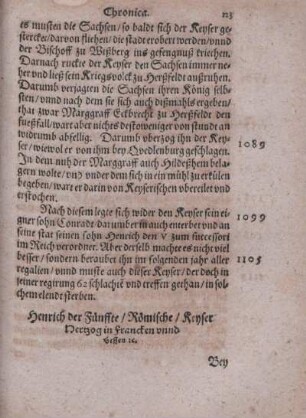 Chronica. 123
es musten die Sachsen/ so baldt sich der Keyser ge-
stercke/ darvon fliehen/ die stadt erobert worden/ vnnd
der Bischoff zu Weßberg ins gefengnuß kriechen.
Darnach ruckte der Keyser den Sachsen immer ne-
her vnd ließ sein Kriegsvolck zu Herßfeldt außruhen.
Darumb verjagten die Sachsen ihren König selb-
sten/ vnnd nach dem sie sich auch dißmahls ergeben/
that zwar Marggraff Eckbrecht zu Herßfeldt den
fueßfall/ wart aber nichts destoweniger von stundt an
widerumb abfellig. Darumb vberzog ihn der Key-
ser/ wiewol er von ihm bey Quedlenburg geschlagen. 1089
In dem nuhr der Marggraff auch Hildeßheim bela-
gern wolte/ vnd vnder dem sich in ein mühl zu erkülen
begeben/ ware er darin von Keyserischen vbereilet vnd
erstochen.
Nach diesem legte sich wider den Keyser sein ei-
gner sohn Conradt/ darumb er ihn auch enterbet vnd an 1099
seine stat seinen sohn Henrich den V zum successorn
im Reich verordnet. Aber derselb machet es nicht viel
besser/ sondern beraubet ihn im folgenden jahr aller 1105
regalien/ vnnd muste auch dieser Keyser/ der doch in
seiner regirung 62 schlacht vnd treffen gethan/ in sol-
chem elendt sterben.
Henrich der Fünffte/ Römische/ Keyser
Hertzog in Francken vnnd
Hessen ꝛc.
Bey